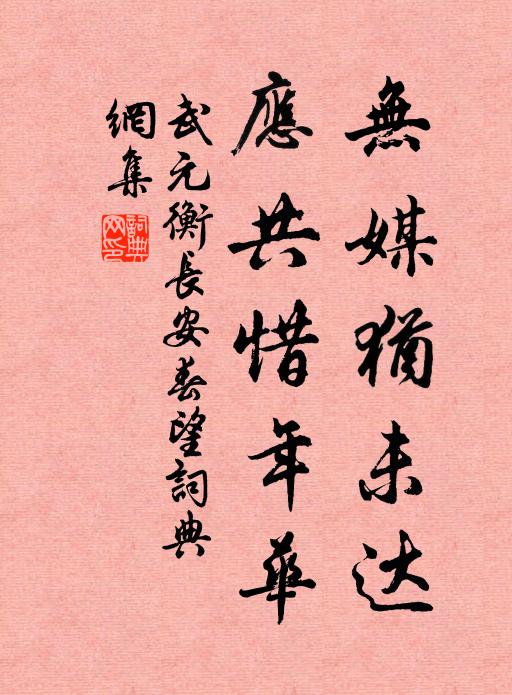 無媒猶未达
應共惜年華
武元衡長安春望詞典
網集
詞典网印